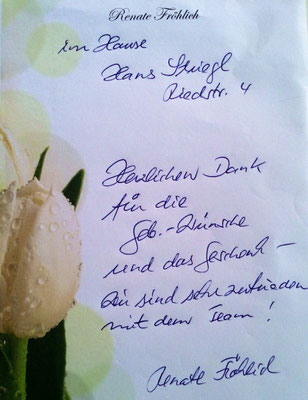 Renate Fröhlich
im Hause
Hans Striegl
Riedstr. 4
Herzlichen Dank
für die
Geb.-Wünsche
und das Geschenk –
Wir sind sehr zufrieden
mit dem Team!
Renate Fröhlich